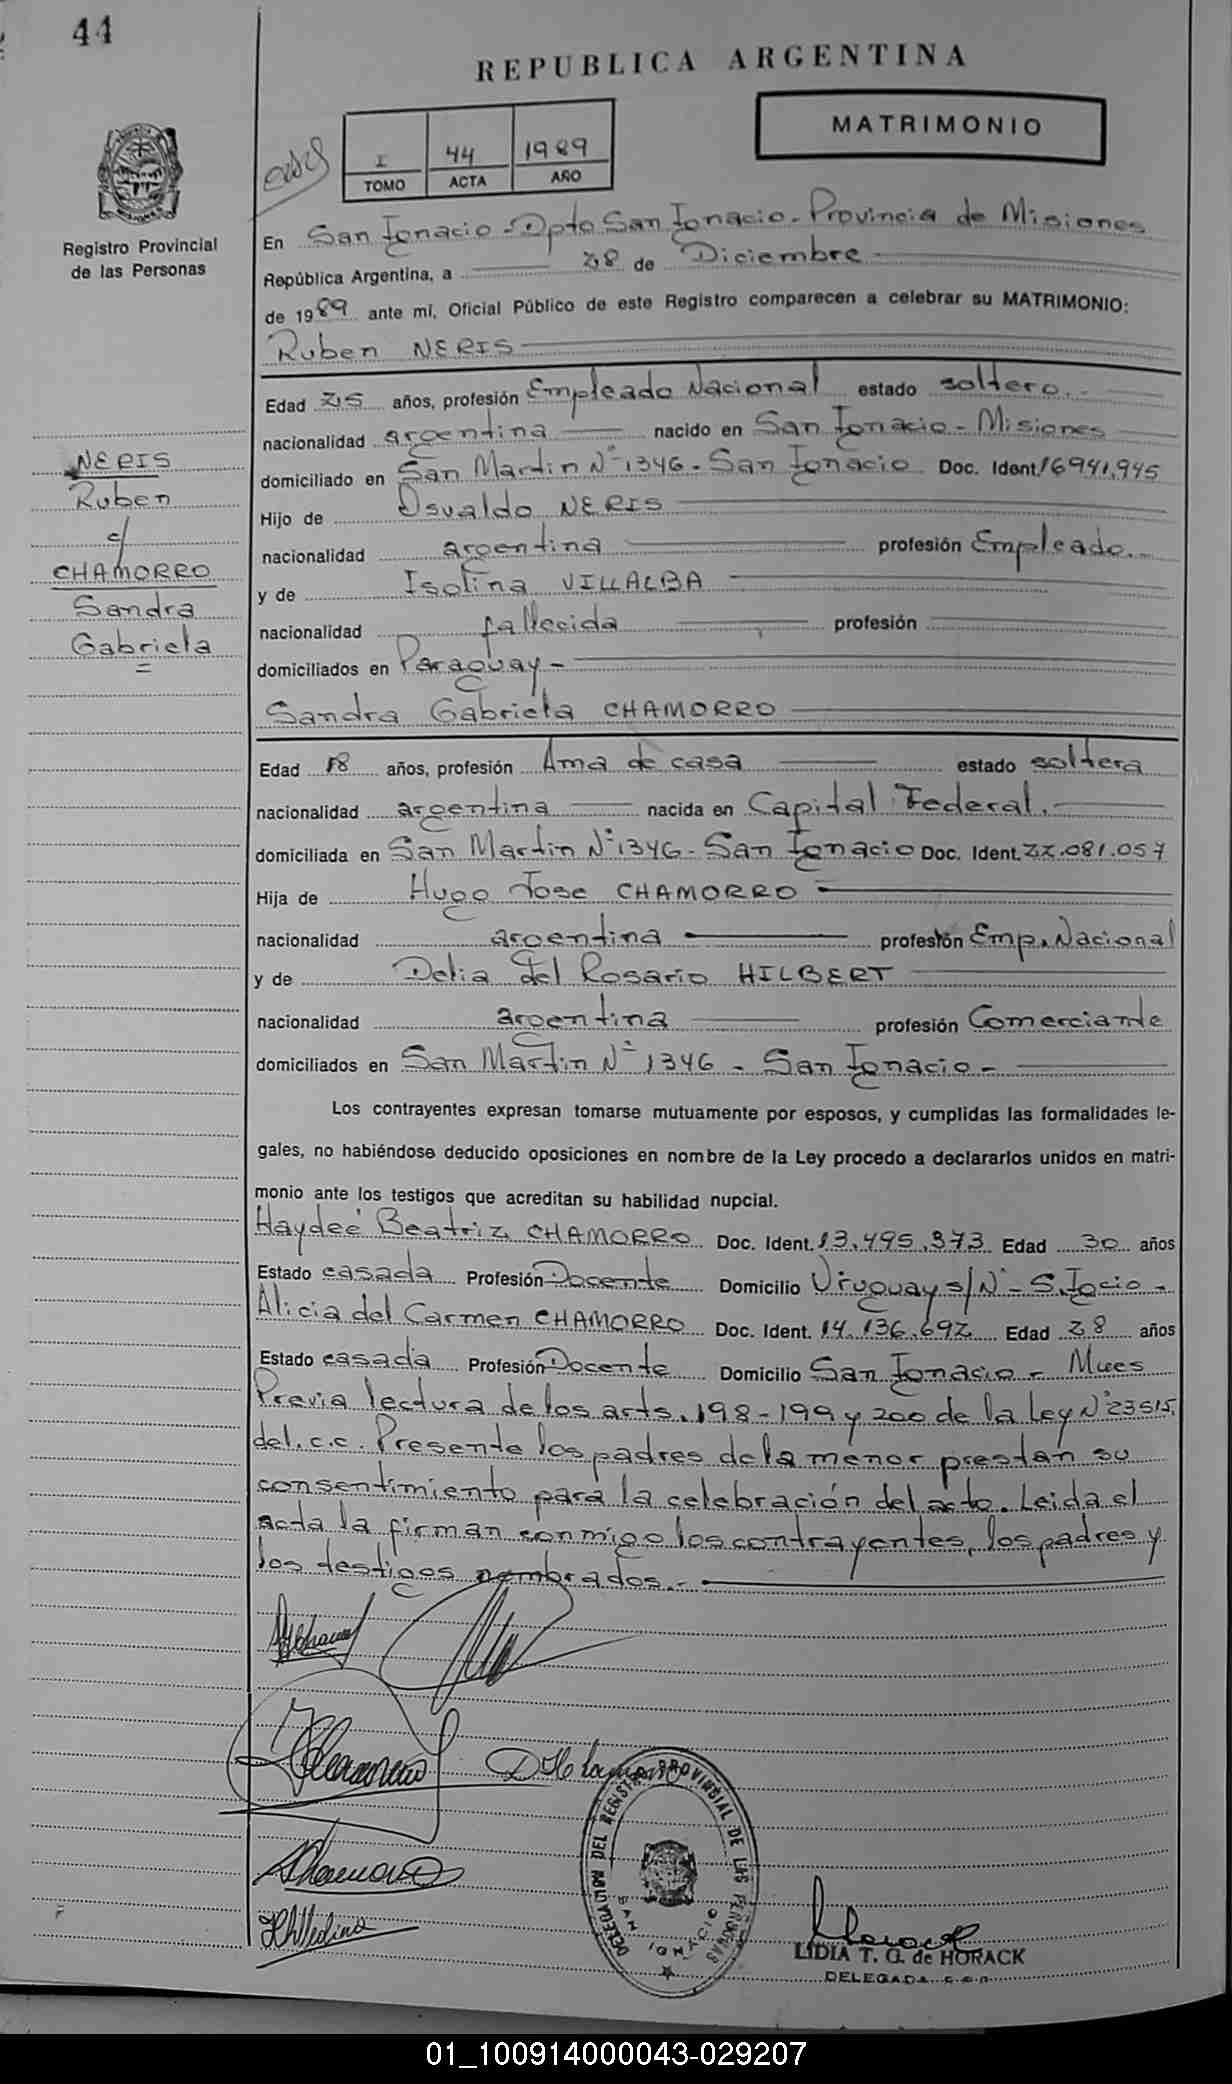 44
REPUBLICA ARGENTINA
MATRIMONIO
I 44 1989
TOMO ACTA AÑO
Registro Provincial
de las Personas
En San Ignacio - Dpto San Ignacio - Provincia de Misiones
República Argentina, a 28 de Diciembre
de 1989 ante mí, Oficial Público de este Registro comparecen a celebrar su MATRIMONIO:
Ruben NERIS
Edad 25 años, profesión Empleado Nacional estado soltero.-
nacionalidad argentina nacido en San Ignacio - Misiones
domiciliado en San Martin N° 1346 - San Ignacio Doc. Ident. 16941.945
Hijo de Osvaldo NERIS
nacionalidad argentina profesión Empleado.
y de Isolina VILLALBA
nacionalidad fallecida profesión
domiciliados en Paraguay -
NERIS
Ruben
c/
CHAMORRO
Sandra
Gabriela
=
Sandra Gabriela CHAMORRO
Edad 18 años, profesión Ama de casa estado soltera
nacionalidad argentina nacida en Capital Federal.
domiciliada en San Martin N° 1346 - San Ignacio Doc. Ident. 22.081.057
Hija de Hugo Jose CHAMORRO
nacionalidad argentina profesión Emp. Nacional
y de Delia del Rosario HILBERT
nacionalidad argentina profesión Comerciante
domiciliados en San Martin N° 1346 - San Ignacio -
Los contrayentes expresan tomarse mutuamente por esposos, y cumplidas las formalidades le-
gales, no habiéndose deducido oposiciones en nombre de la Ley procedo a declararlos unidos en matri-
monio ante los testigos que acreditan su habilidad nupcial.
Haydeé Beatriz CHAMORRO Doc. Ident. 13.495.373 Edad 30 años
Estado casada Profesión Docente Domicilio Uruguay s/N° - S. Igcio -
Alicia del Carmen CHAMORRO Doc. Ident. 14.136.692 Edad 28 años
Estado casada Profesión Docente Domicilio San Ignacio - Mnes
Previa lectura de los arts. 198-199 y 200 de la Ley N° 23515.
del. c.c. Presente los padres de la menor prestan su
consentimiento para la celebración del acto. Leida el
acta la firman conmigo los contrayentes, los padres y
los testigos nombrados.-
DELEGACION DEL REGISTRO PROVINCIAL DE LAS PERSONAS
SAN IGNACIO
LIDIA T. G. de HORACK
DELEGADA
01_100914000043-029207